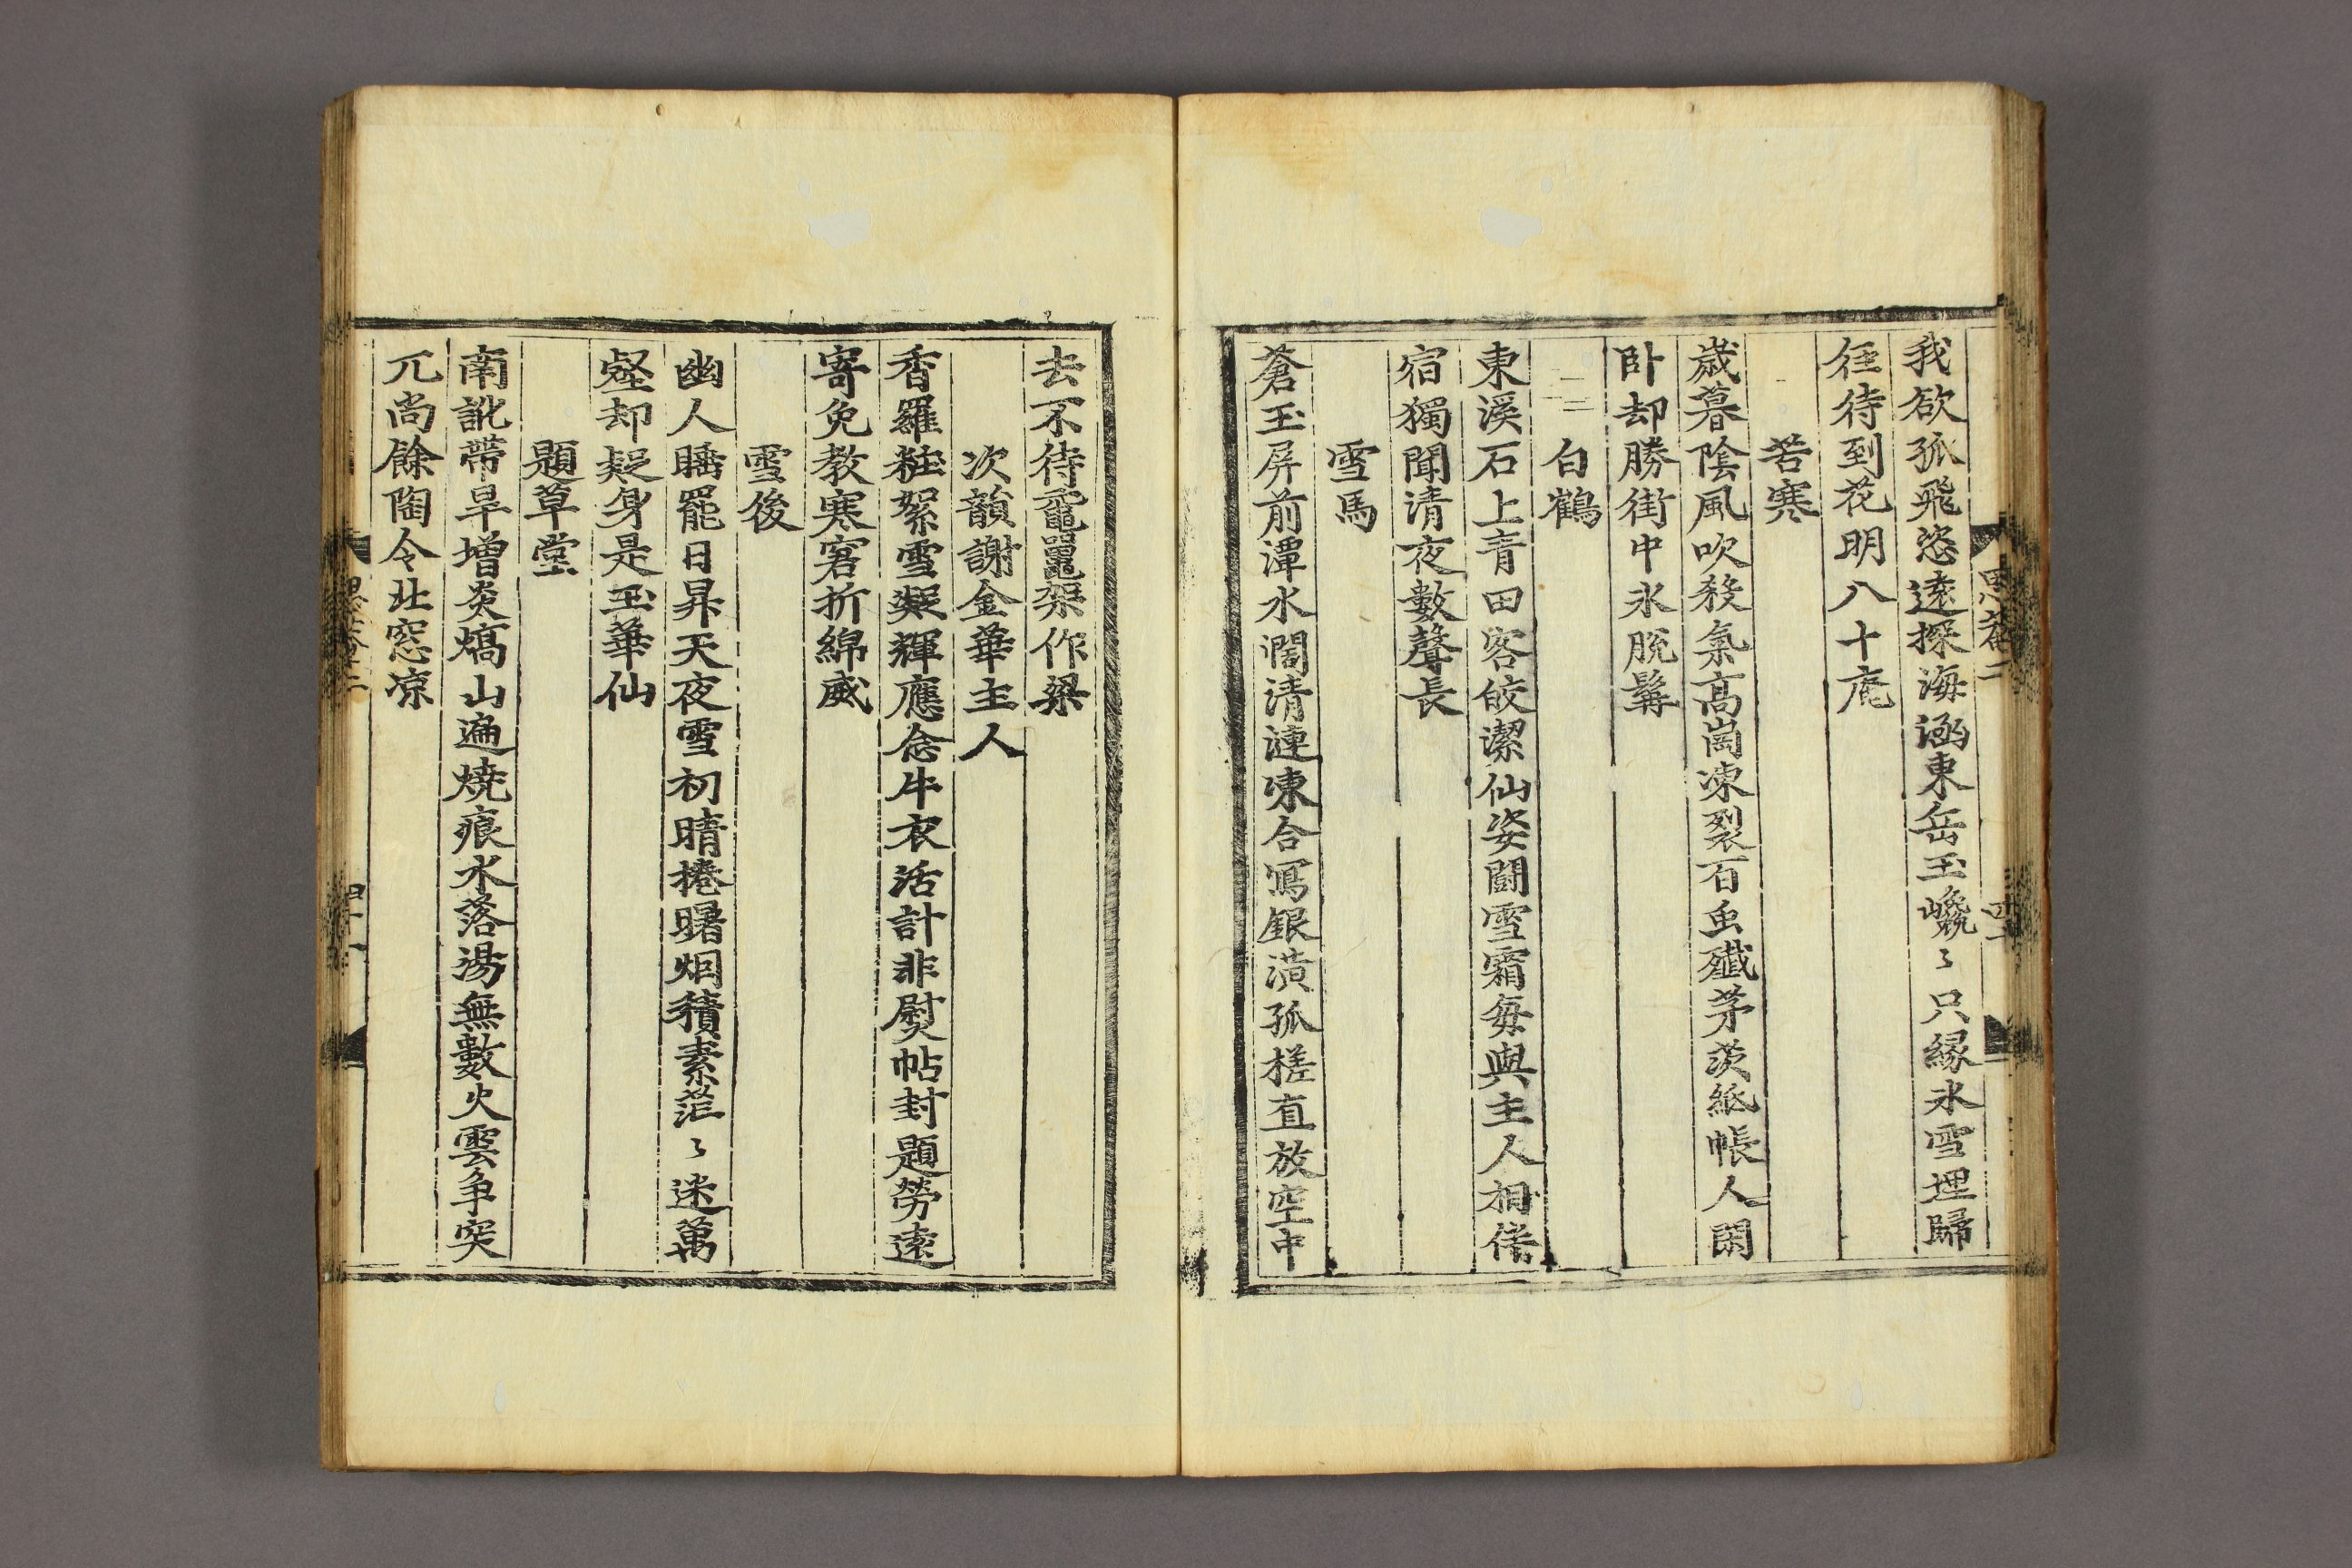 我欲孤飛恣遠探海涵東岳玉巉〻只緣氷雪埋歸
徑待到花明八十庵
苦寒
歲暮陰風吹殺氣高崗凍裂百虫殲茅茨紙帳人閑
卧却勝街中氷脫髯
白鶴
東溪石上青田客皎潔仙姿鬪雪霜每與主人相伴
宿獨聞清夜數聲長
雪馬
蒼玉屛前潭水濶清漣凍合寫銀潢孤槎直放空中
去不待黿鼉架作梁
次韻謝金華主人
香羅粧絮雪凝輝應念牛衣活計非熨帖封題勞遠
寄免教寒窘折綿威
雪後
幽人睡罷日昇天夜雪初晴捲曙烟積素茫〻迷萬
壑却疑身是玉華仙
題草堂
南訛帶旱增炎熇山遍燒痕水落湯無數火雲爭突
兀尚餘陶令北窓凉